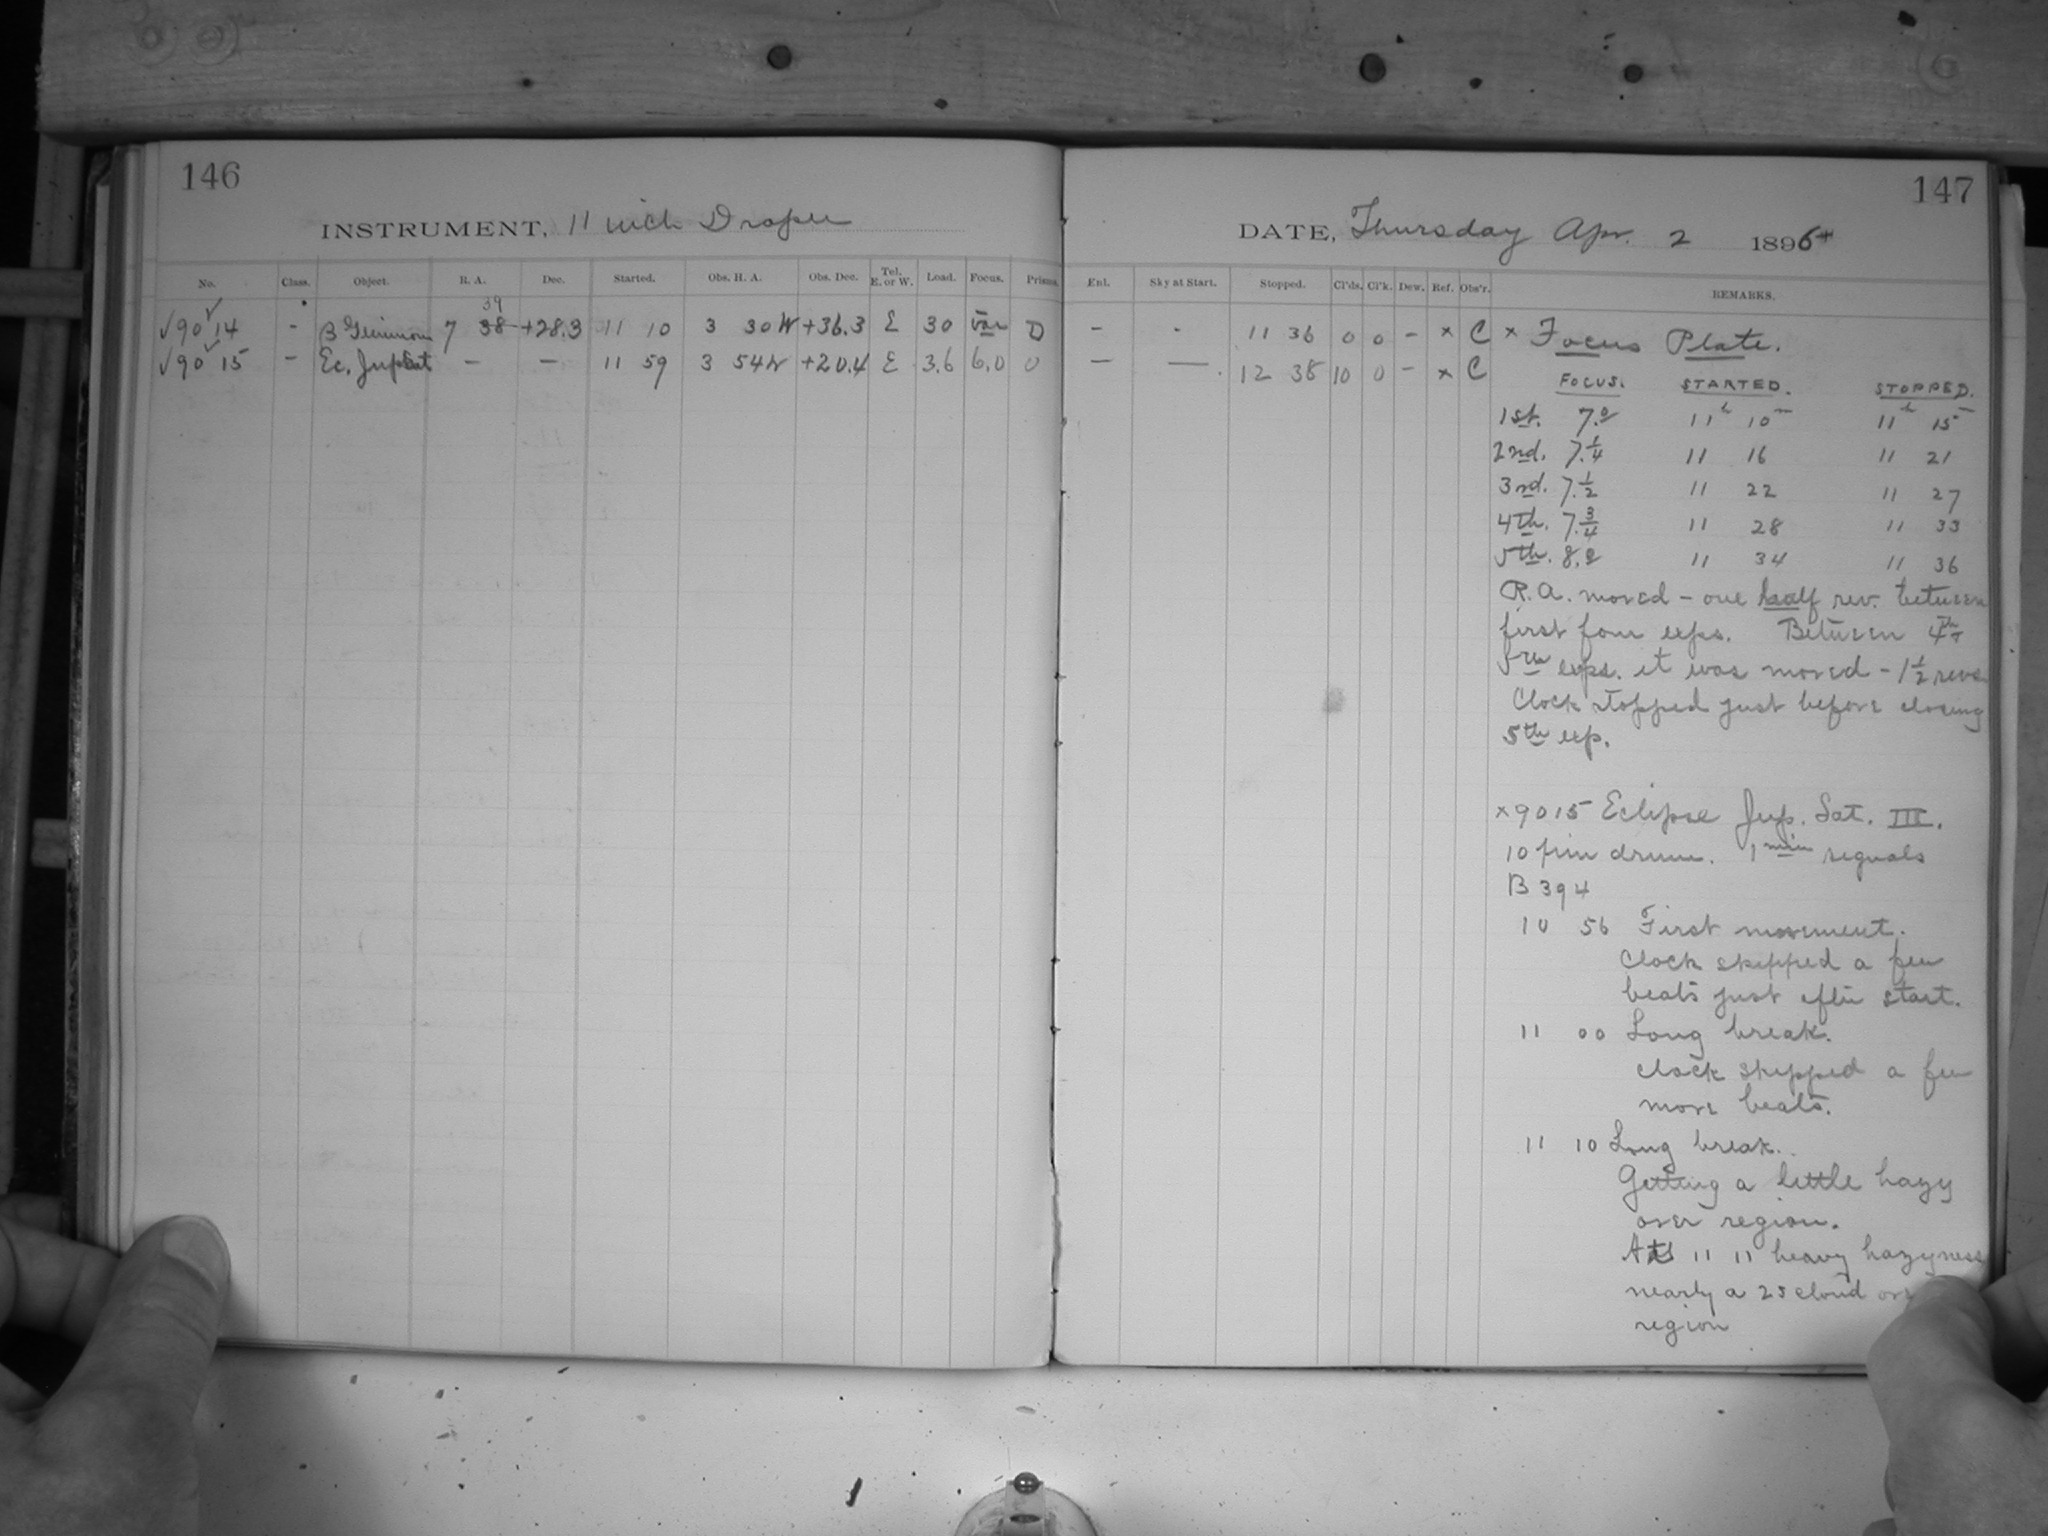 146
INSTRUMENT, 11 inch Draper
No. Class. Object. R. A. Dec. Started. Obs. H. A. Obs. Dec. Tel. E. or W. Load. Focus. Prisms.
39
√90 14 - B Geminorum 7 38 +28.3 11 10 3 30 W +36.3 E 30 Var D
√90 15 - Ec. Jup Sat — — 11 59 3 54 W +20.4 E 3.6 6.0 0
147
DATE, Thursday Apr. 2 1896
Enl. Sky at Start. Stopped. Cl'ds. Cl'k. Dew. Ref. Obs'r. REMARKS.
- - 11 36 0 0 - x C x Focus Plate.
— — 12 38 10 0 - x C
FOCUS. STARTED. STOPPED.
1st. 7.0 11h 10m 11h 15m
2nd. 7.1/4 11 16 11 21
3rd. 7.1/2 11 22 11 27
4th. 7.3/4 11 28 11 33
5th. 8.0 11 34 11 36
R.A. moved - one half rev. between
first four exps. Between 4th +
5th exps. it was moved - 1 1/2 revs.
Clock stopped just before closing
5th exp.
x 9015 Eclipse Jup. Sat. III.
10 pin drum. 1 min signals
B 394
10 56 First movement.
Clock skipped a few
beats just after start.
11 00 Long break.
clock skipped a few
more beats.
11 10 Long break.
Getting a little hazy
over region.
At 11 11 heavy hazyness
nearly a 25 cloud
region